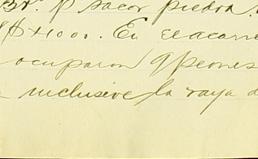 p sacar piedra.
$4100. En el acarre
ocuparon 9 peones
inclusive la raya d